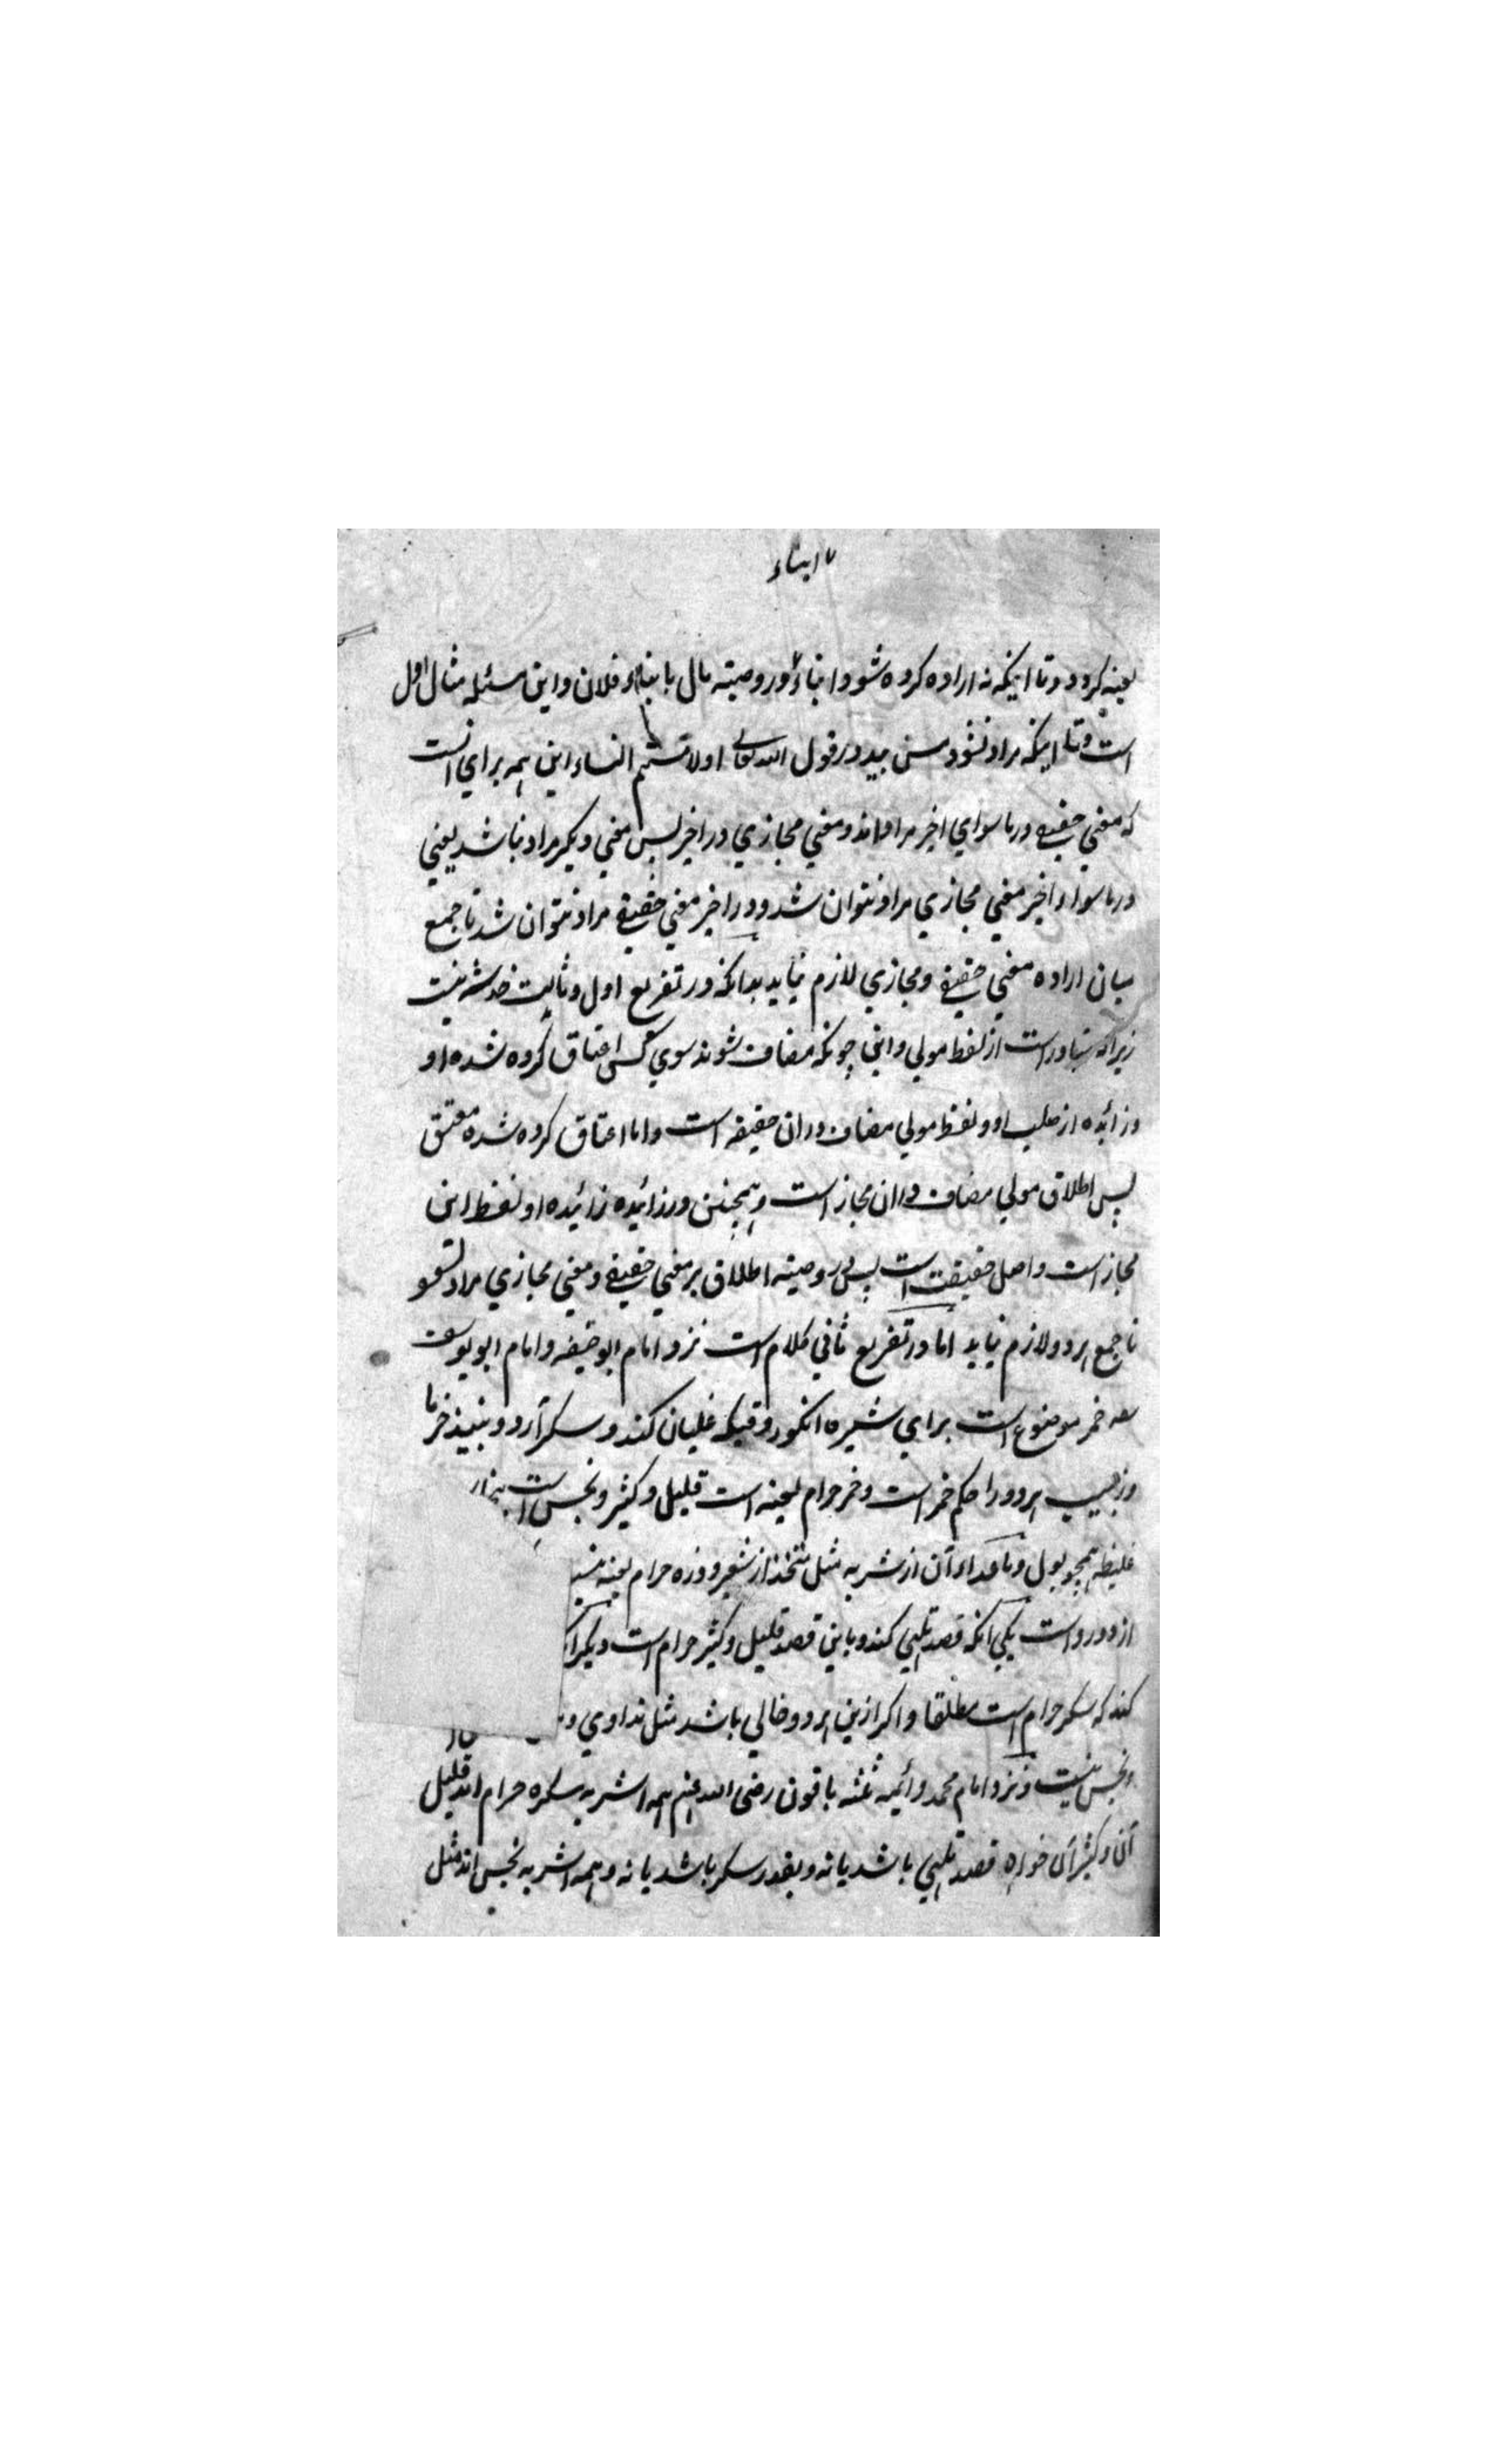 ابناء
بعینه گیرد و تا اینکه نه اراده کرده شود ابناء در وصیته مال بابناء فلان و این مسئله مثال اول
است و تا اینکه مراد نشود مس بید در قول الله تعالی اولامستم النساء این همه برای انست
که معنی حقیقی در ماسوای اخیر مراد اند و معنی مجازی در اخیر پس معنی دیگر مراد نباشد یعنی
در ماسواء اخیر معنی مجازی مراد نتوان شد و در اخیر معنی حقیقی مراد نتوان شد تا جمع
میان اراده معنی حقیقی و مجازی لازم نیاید بدانکه در تفریع اول و ثالث خدشه نیست
زیرا که متبادر است از لفظ مولی و ابن چونکه مضاف شوند سوی کسی اعتاق کرده شده او
و زائیده از صلب او و لفظ مولی مضاف در ان حقیقه است و اما اعتاق کرده شده معتق
پس اطلاق مولی مضاف در ان مجاز است و همچنین در زائیده زائیده او لفظ ابن
مجاز است و اصل حقیقت است پس در وصیته اطلاق بر معنی حقیقی و معنی مجازی مراد نشود
تا جمع هر دو لازم نیاید اما در تفریع ثانی کلام است نزد امام ابو حنیفه و امام ابو یوسف
خمر موضوع است برای شیره انگور وقتیکه غلیان کند و سکر آرد و نبیذ خرما
و زبیب هر دو را حکم خمر است و خمر حرام لعینه است قلیل و کثیر و نجس است
غلیظه همچو بول و ماعداء آن از شربه مثل متخذ از شعیر و ذره حرام لعینه
از دو رو است یکی آنکه قصد تلهی کند و باین قصد قلیل و کثیر حرام است
کند که سکر حرام است مطلقا و اگر ازین هر دو خالی باشد مثل تداوی
و نجس نیست و نزد امام محمد و ائمه ثلثه باقون رضی الله عنهم همه اشربه مسکره حرام اند قلیل
آن و کثیر آن خواه قصد تلهی باشد یا نه و بقدر سکر باشد یا نه و همه اشربه نجس اند مثل